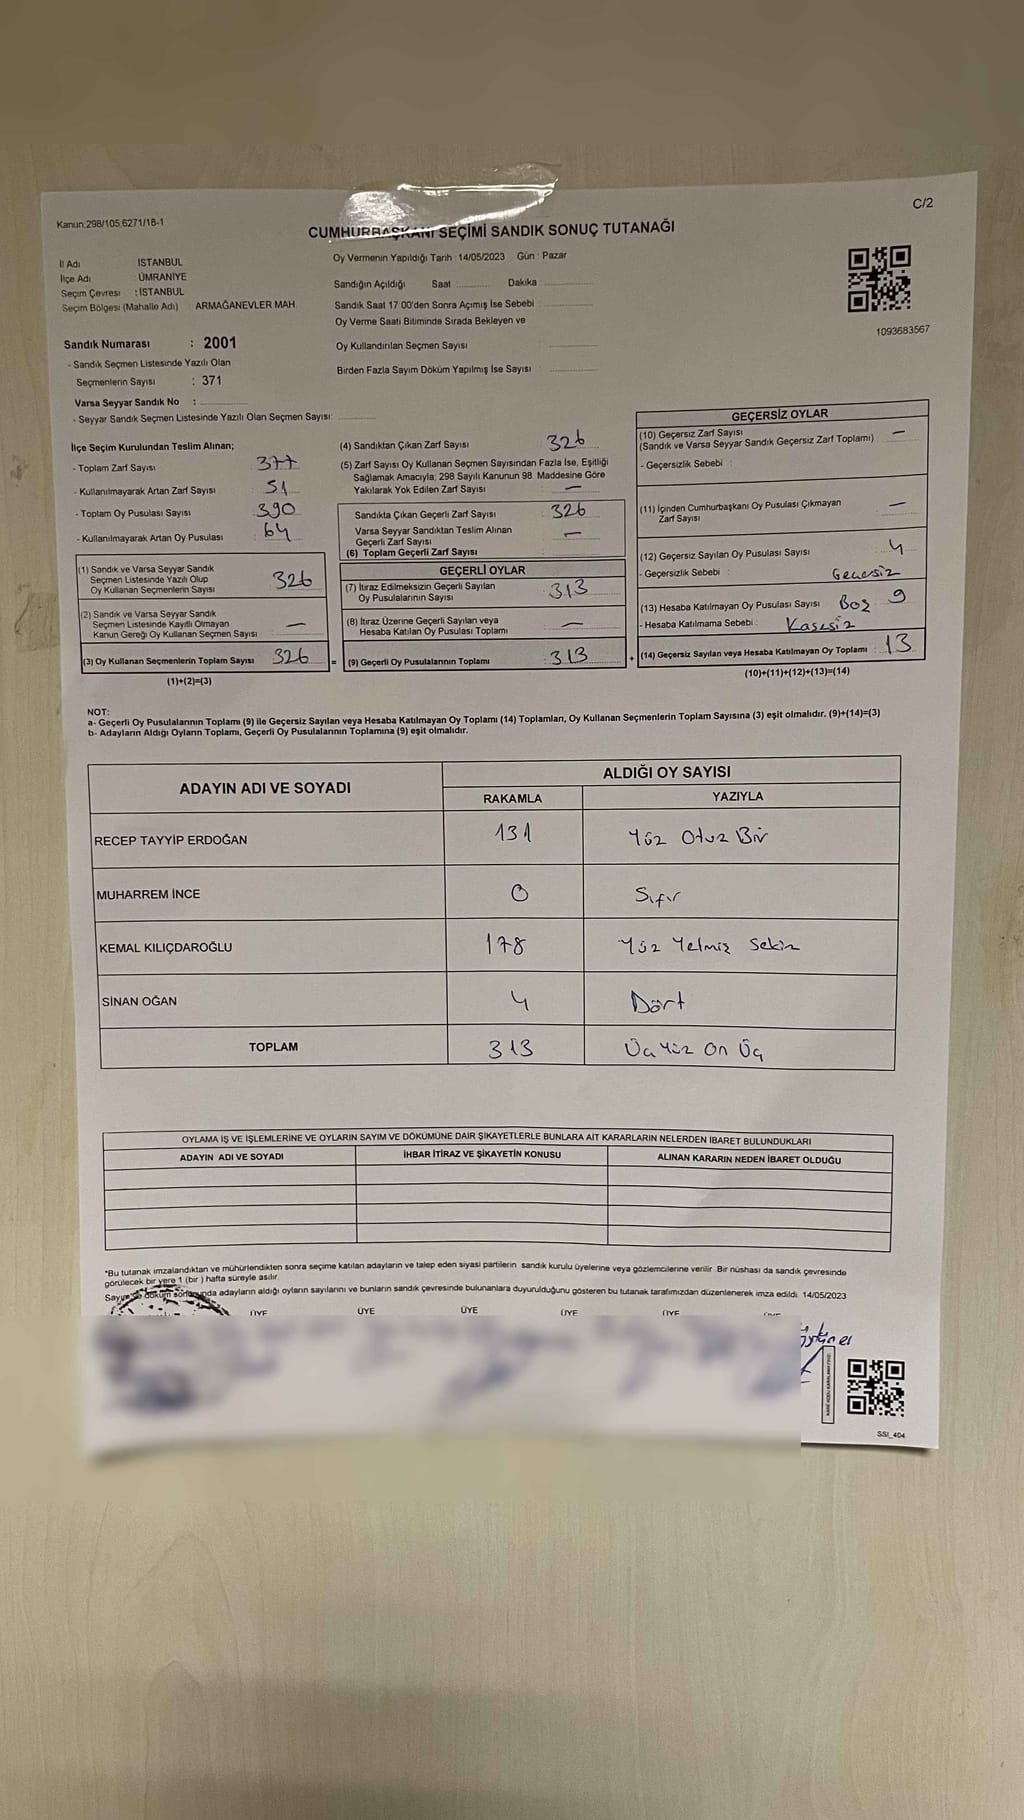 Kanun:298/105,6271/18-1
C/2
CUMHURBAŞKANI SEÇİMİ SANDIK SONUÇ TUTANAĞI
İl Adı İSTANBUL
İlçe Adı ÜMRANİYE
Seçim Çevresi : İSTANBUL
Seçim Bölgesi (Mahalle Adı) ARMAĞANEVLER MAH.
Sandık Numarası : 2001
- Sandık Seçmen Listesinde Yazılı Olan
Seçmenlerin Sayısı : 371
Varsa Seyyar Sandık No :
- Seyyar Sandık Seçmen Listesinde Yazılı Olan Seçmen Sayısı:
Oy Vermenin Yapıldığı Tarih : 14/05/2023 Gün : Pazar
Sandığın Açıldığı Saat Dakika :
Sandık Saat 17.00'den Sonra Açımış İse Sebebi
Oy Verme Saati Bitiminde Sırada Bekleyen ve
Oy Kullandırılan Seçmen Sayısı
Birden Fazla Sayım Döküm Yapılmış İse Sayısı
1093683567
İlçe Seçim Kurulundan Teslim Alınan;
- Toplam Zarf Sayısı 377
- Kullanılmayarak Artan Zarf Sayısı 51
- Toplam Oy Pusulası Sayısı 390
- Kullanılmayarak Artan Oy Pusulası 64
(1) Sandık ve Varsa Seyyar Sandık
Seçmen Listesinde Yazılı Olup
Oy Kullanan Seçmenlerin Sayısı 326
(2) Sandık ve Varsa Seyyar Sandık
Seçmen Listesinde Kayıtlı Olmayan
Kanun Gereği Oy Kullanan Seçmen Sayısı —
(3) Oy Kullanan Seçmenlerin Toplam Sayısı 326
(1)+(2)=(3)
(4) Sandıktan Çıkan Zarf Sayısı 326
(5) Zarf Sayısı Oy Kullanan Seçmen Sayısından Fazla İse, Eşitliği
Sağlamak Amacıyla; 298 Sayılı Kanunun 98. Maddesine Göre
Yakılarak Yok Edilen Zarf Sayısı : —
Sandıkta Çıkan Geçerli Zarf Sayısı : 326
Varsa Seyyar Sandıktan Teslim Alınan
Geçerli Zarf Sayısı —
(6) Toplam Geçerli Zarf Sayısı
GEÇERLİ OYLAR
(7) İtiraz Edilmeksizin Geçerli Sayılan
Oy Pusulalarının Sayısı : 313
(8) İtiraz Üzerine Geçerli Sayılan veya
Hesaba Katılan Oy Pusulası Toplamı : —
= (9) Geçerli Oy Pusulalarının Toplamı : 313 +
GEÇERSİZ OYLAR
(10) Geçersiz Zarf Sayısı
(Sandık ve Varsa Seyyar Sandık Geçersiz Zarf Toplamı) : —
- Geçersizlik Sebebi :
(11) İçinden Cumhurbaşkanı Oy Pusulası Çıkmayan
Zarf Sayısı —
(12) Geçersiz Sayılan Oy Pusulası Sayısı : 4
- Geçersizlik Sebebi : Geçersiz
(13) Hesaba Katılmayan Oy Pusulası Sayısı Boş 9
- Hesaba Katılmama Sebebi : Kaşesiz
(14) Geçersiz Sayılan veya Hesaba Katılmayan Oy Toplamı : 13
(10)+(11)+(12)+(13)=(14)
NOT:
a- Geçerli Oy Pusulalarının Toplamı (9) ile Geçersiz Sayılan veya Hesaba Katılmayan Oy Toplamı (14) Toplamları, Oy Kullanan Seçmenlerin Toplam Sayısına (3) eşit olmalıdır. (9)+(14)=(3)
b- Adayların Aldığı Oyların Toplamı, Geçerli Oy Pusulalarının Toplamına (9) eşit olmalıdır.
ADAYIN ADI VE SOYADI ALDIĞI OY SAYISI
RAKAMLA YAZIYLA
RECEP TAYYİP ERDOĞAN 131 Yüz Otuz Bir
MUHARREM İNCE 0 Sıfır
KEMAL KILIÇDAROĞLU 178 Yüz Yetmiş Sekiz
SİNAN OĞAN 4 Dört
TOPLAM 313 Üç Yüz On Üç
OYLAMA İŞ VE İŞLEMLERİNE VE OYLARIN SAYIM VE DÖKÜMÜNE DAİR ŞİKAYETLERLE BUNLARA AİT KARARLARIN NELERDEN İBARET BULUNDUKLARI
ADAYIN ADI VE SOYADI İHBAR İTİRAZ VE ŞİKAYETİN KONUSU ALINAN KARARIN NEDEN İBARET OLDUĞU
*Bu tutanak imzalandıktan ve mühürlendikten sonra seçime katılan adayların ve talep eden siyasi partilerin sandık kurulu üyelerine veya gözlemcilerine verilir. Bir nüshası da sandık çevresinde
görülecek bir yere 1 (bir ) hafta süreyle asılır.
Sayım ve döküm sonucunda adayların aldığı oyların sayılarını ve bunların sandık çevresinde bulunanlara duyurulduğunu gösteren bu tutanak tarafımızdan düzenlenerek imza edildi. 14/05/2023
ÜYE ÜYE ÜYE ÜYE ÜYE
SSI_404